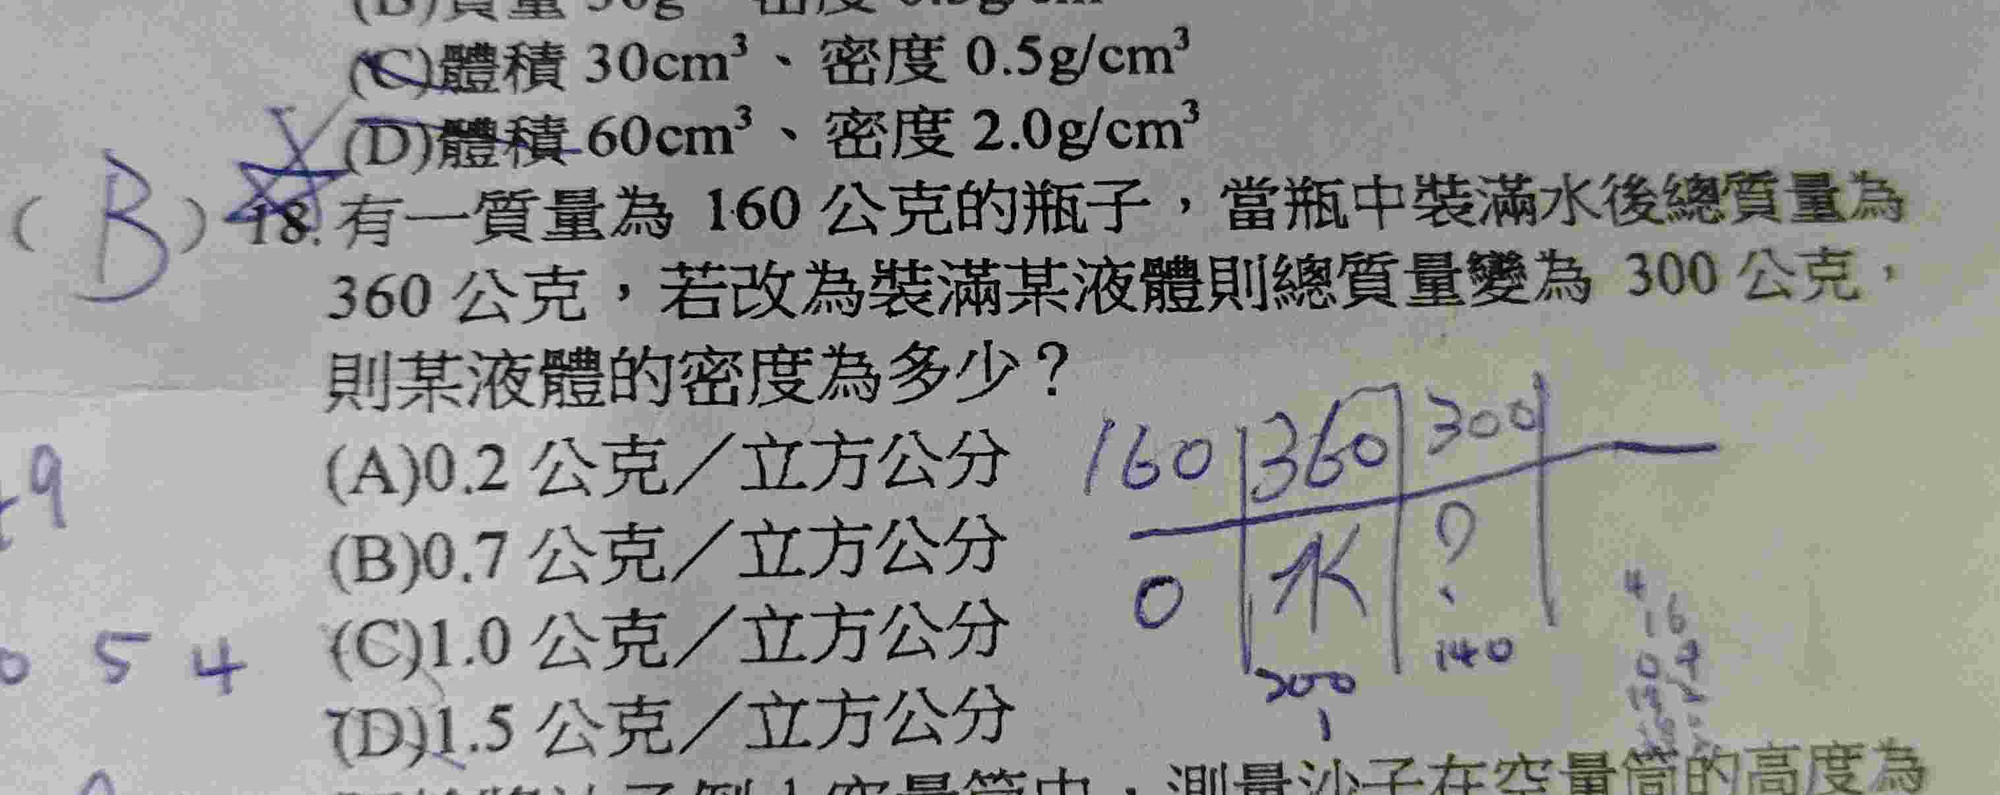 (C)體積 30cm³、密度 0.5g/cm³
(D)體積 60cm³、密度 2.0g/cm³
( B ) 18. 有一質量為 160 公克的瓶子，當瓶中裝滿水後總質量為
360 公克，若改為裝滿某液體則總質量變為 300 公克，
則某液體的密度為多少？
(A)0.2 公克／立方公分
160 360 300
9
(B)0.7 公克／立方公分
0 水 ?
(C)1.0 公克／立方公分
5 4
200 140
1
(D)1.5 公克／立方公分
測量沙子在空量筒的高度為